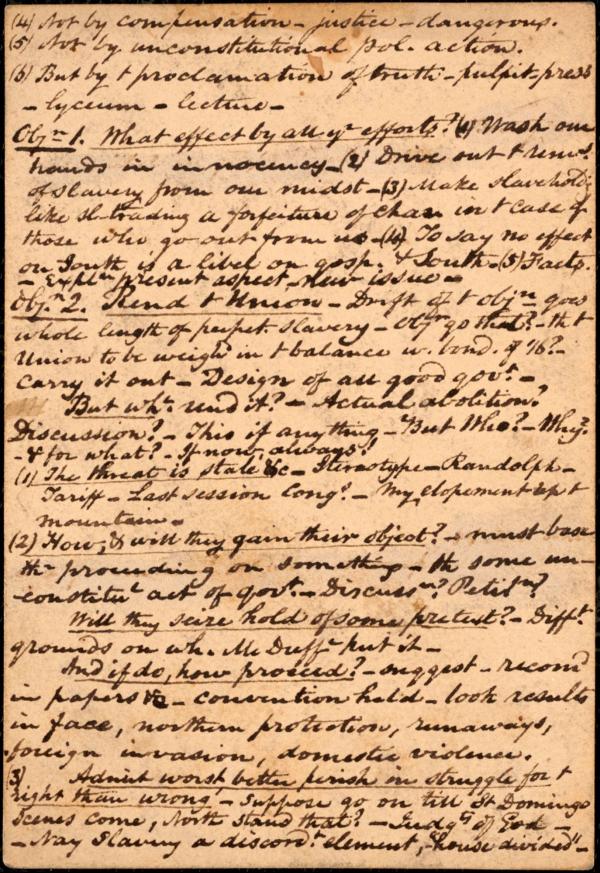 (4) Not by compensation - justice - dangerous.
(5) Not by unconstitutional pol. action.
(6) But by t proclamation of truth - pulpit - press
- lyceum - lecture -
Objn 1. What effect by all yr efforts? (1) Wash our
hands in innocency - (2) Drive out t remt
of slavery from our midst - (3) Make slavehold
like sl-trading a forfeiture of char in t case of
those who go out from us - (4) To say no effect
on South is a libel on gosp. & South - (5) Facts.
- Expln present aspect - new issue -
Objn 2. Rend t Union - Drift of t objn goes
whole length of perpet slavery - Objr go that? - tht
Union to be weighd in t balance w. bond. of 1/6? -
carry it out - Design of all good govt -
But wht rend it? - Actual abolition?
Discussion? - This if anything - But Who? - Why?
- & for what? - If now, always?
(1) The threat is stale &c - Stereotype - Randolph -
Tariff - Last session Cong. - My elopement up t
mountain -
(2) How, & will they gain their object? - must base
thr proceeding on something - th some un-
constitul act of govt - Discussn? Petitn?
Will they seize hold of some pretext? - Difft
grounds on wh. McDuffe put it -
And if do, how proceed? - suggest - recomd
in papers &c - convention held - look results
in face, northern protection, runaways,
foreign invasion, domestic violence.
3) Admit worst, better perish in struggle for t
right than wrong - Suppose go on till St Domingo
Scenes come, North stand that? - Judgts of God -
- Nay Slavery a discordt element, "house divided" -